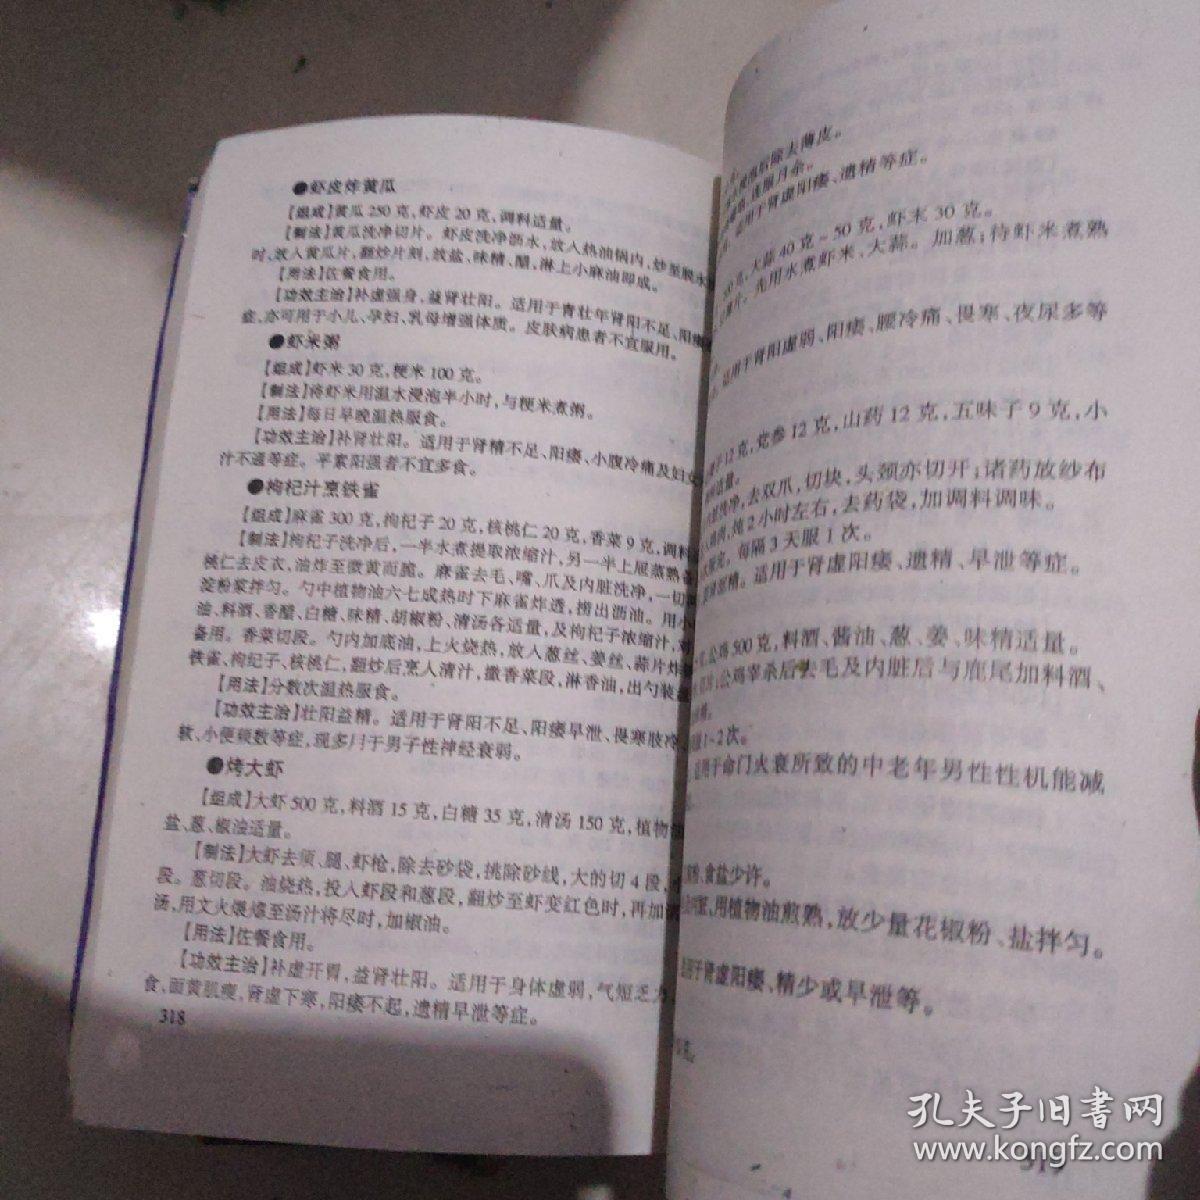 ●虾皮炸黄瓜
【组成】黄瓜 250 克,虾皮 20 克,调料适量。
【制法】黄瓜洗净切片。虾皮洗净沥水,放入热油锅内,炒至脱水
时,放入黄瓜片,翻炒片刻,放盐、味精、醋,淋上小麻油即成。
【用法】佐餐食用。
【功效主治】补虚强身,益肾壮阳。适用于青壮年肾阳不足、阳痿
症,亦可用于小儿、孕妇、乳母增强体质。皮肤病患者不宜服用。
●虾米粥
【组成】虾米 30 克,粳米 100 克。
【制法】将虾米用温水浸泡半小时,与粳米煮粥。
【用法】每日早晚温热服食。
【功效主治】补肾壮阳。适用于肾精不足、阳痿、小腹冷痛及妇女
汁不通等症。平素阳强者不宜多食。
●枸杞汁烹铁雀
【组成】麻雀 300 克,枸杞子 20 克,核桃仁 20 克,香菜 9 克,调料
【制法】枸杞子洗净后,一半水煮提取浓缩汁,另一半上屉蒸熟备
桃仁去皮衣,油炸至微黄而脆。麻雀去毛、嘴、爪及内脏洗净,一切
淀粉浆拌匀。勺中植物油六七成热时下麻雀炸透,捞出沥油。用小
油、料酒、香醋、白糖、味精、胡椒粉、清汤各适量,及枸杞子浓缩汁,对
备用。香菜切段。勺内加底油,上火烧热,放入葱丝、姜丝、蒜片炸
铁雀、枸纪子、核桃仁,翻炒后烹人清汁,撒香菜段,淋香油,出勺装
【用法】分数次温热服食。
【功效主治】壮阳益精。适用于肾阳不足、阳痿早泄、畏寒肢冷、
软、小便频数等症,现多用于男子性神经衰弱。
●烤大虾
【组成】大虾 500 克,料酒 15 克,白糖 35 克,清汤 150 克,植物油
盐、葱、椒油适量。
【制法】大虾去须、腿、虾枪,除去砂袋,挑除砂线,大的切 4 段,
段。葱切段。油烧热,投入虾段和葱段,翻炒至虾变红色时,再加
汤,用文火煨㸆至汤汁将尽时,加椒油。
【用法】佐餐食用。
【功效主治】补虚开胃,益肾壮阳。适用于身体虚弱,气短乏力
食、面黄肌瘦,肾虚下寒,阳痿不起,遗精早泄等症。
318
后除去薄皮。
连服月余。
适用于肾虚阳痿、遗精等症。
大蒜 40 克～50 克,虾末 30 克。
先用水煮虾米、大蒜。加葱;待虾米煮熟
适用于肾阳虚弱、阳痿、腰冷痛、畏寒、夜尿多等
12 克,党参 12 克,山药 12 克,五味子 9 克,小
适量。
洗净,去双爪,切块,头颈亦切开;诸药放纱布
炖 2 小时左右,去药袋,加调料调味。
每隔 3 天服 1 次。
适用于肾虚阳痿、遗精、早泄等症。
公鸡 500 克,料酒、酱油、葱、姜、味精适量。
公鸡宰杀后去毛及内脏后与鹿尾加料酒、
1～2 次。
适用于命门火衰所致的中老年男性性机能减
食盐少许。
用植物油煎熟,放少量花椒粉、盐拌匀。
用于肾虚阳痿、精少或早泄等。
克。
孔夫子旧书网
www.kongfz.com